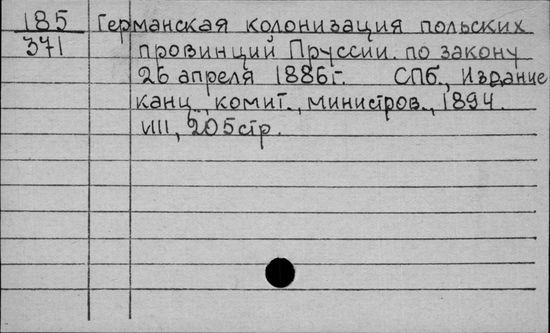 185 Германская колонизация польских
371 провинций Пруссии. по закону
26 апреля 1886г. СПб., Издание
канц., комит., министров., 1894.
VIII, 205стр.